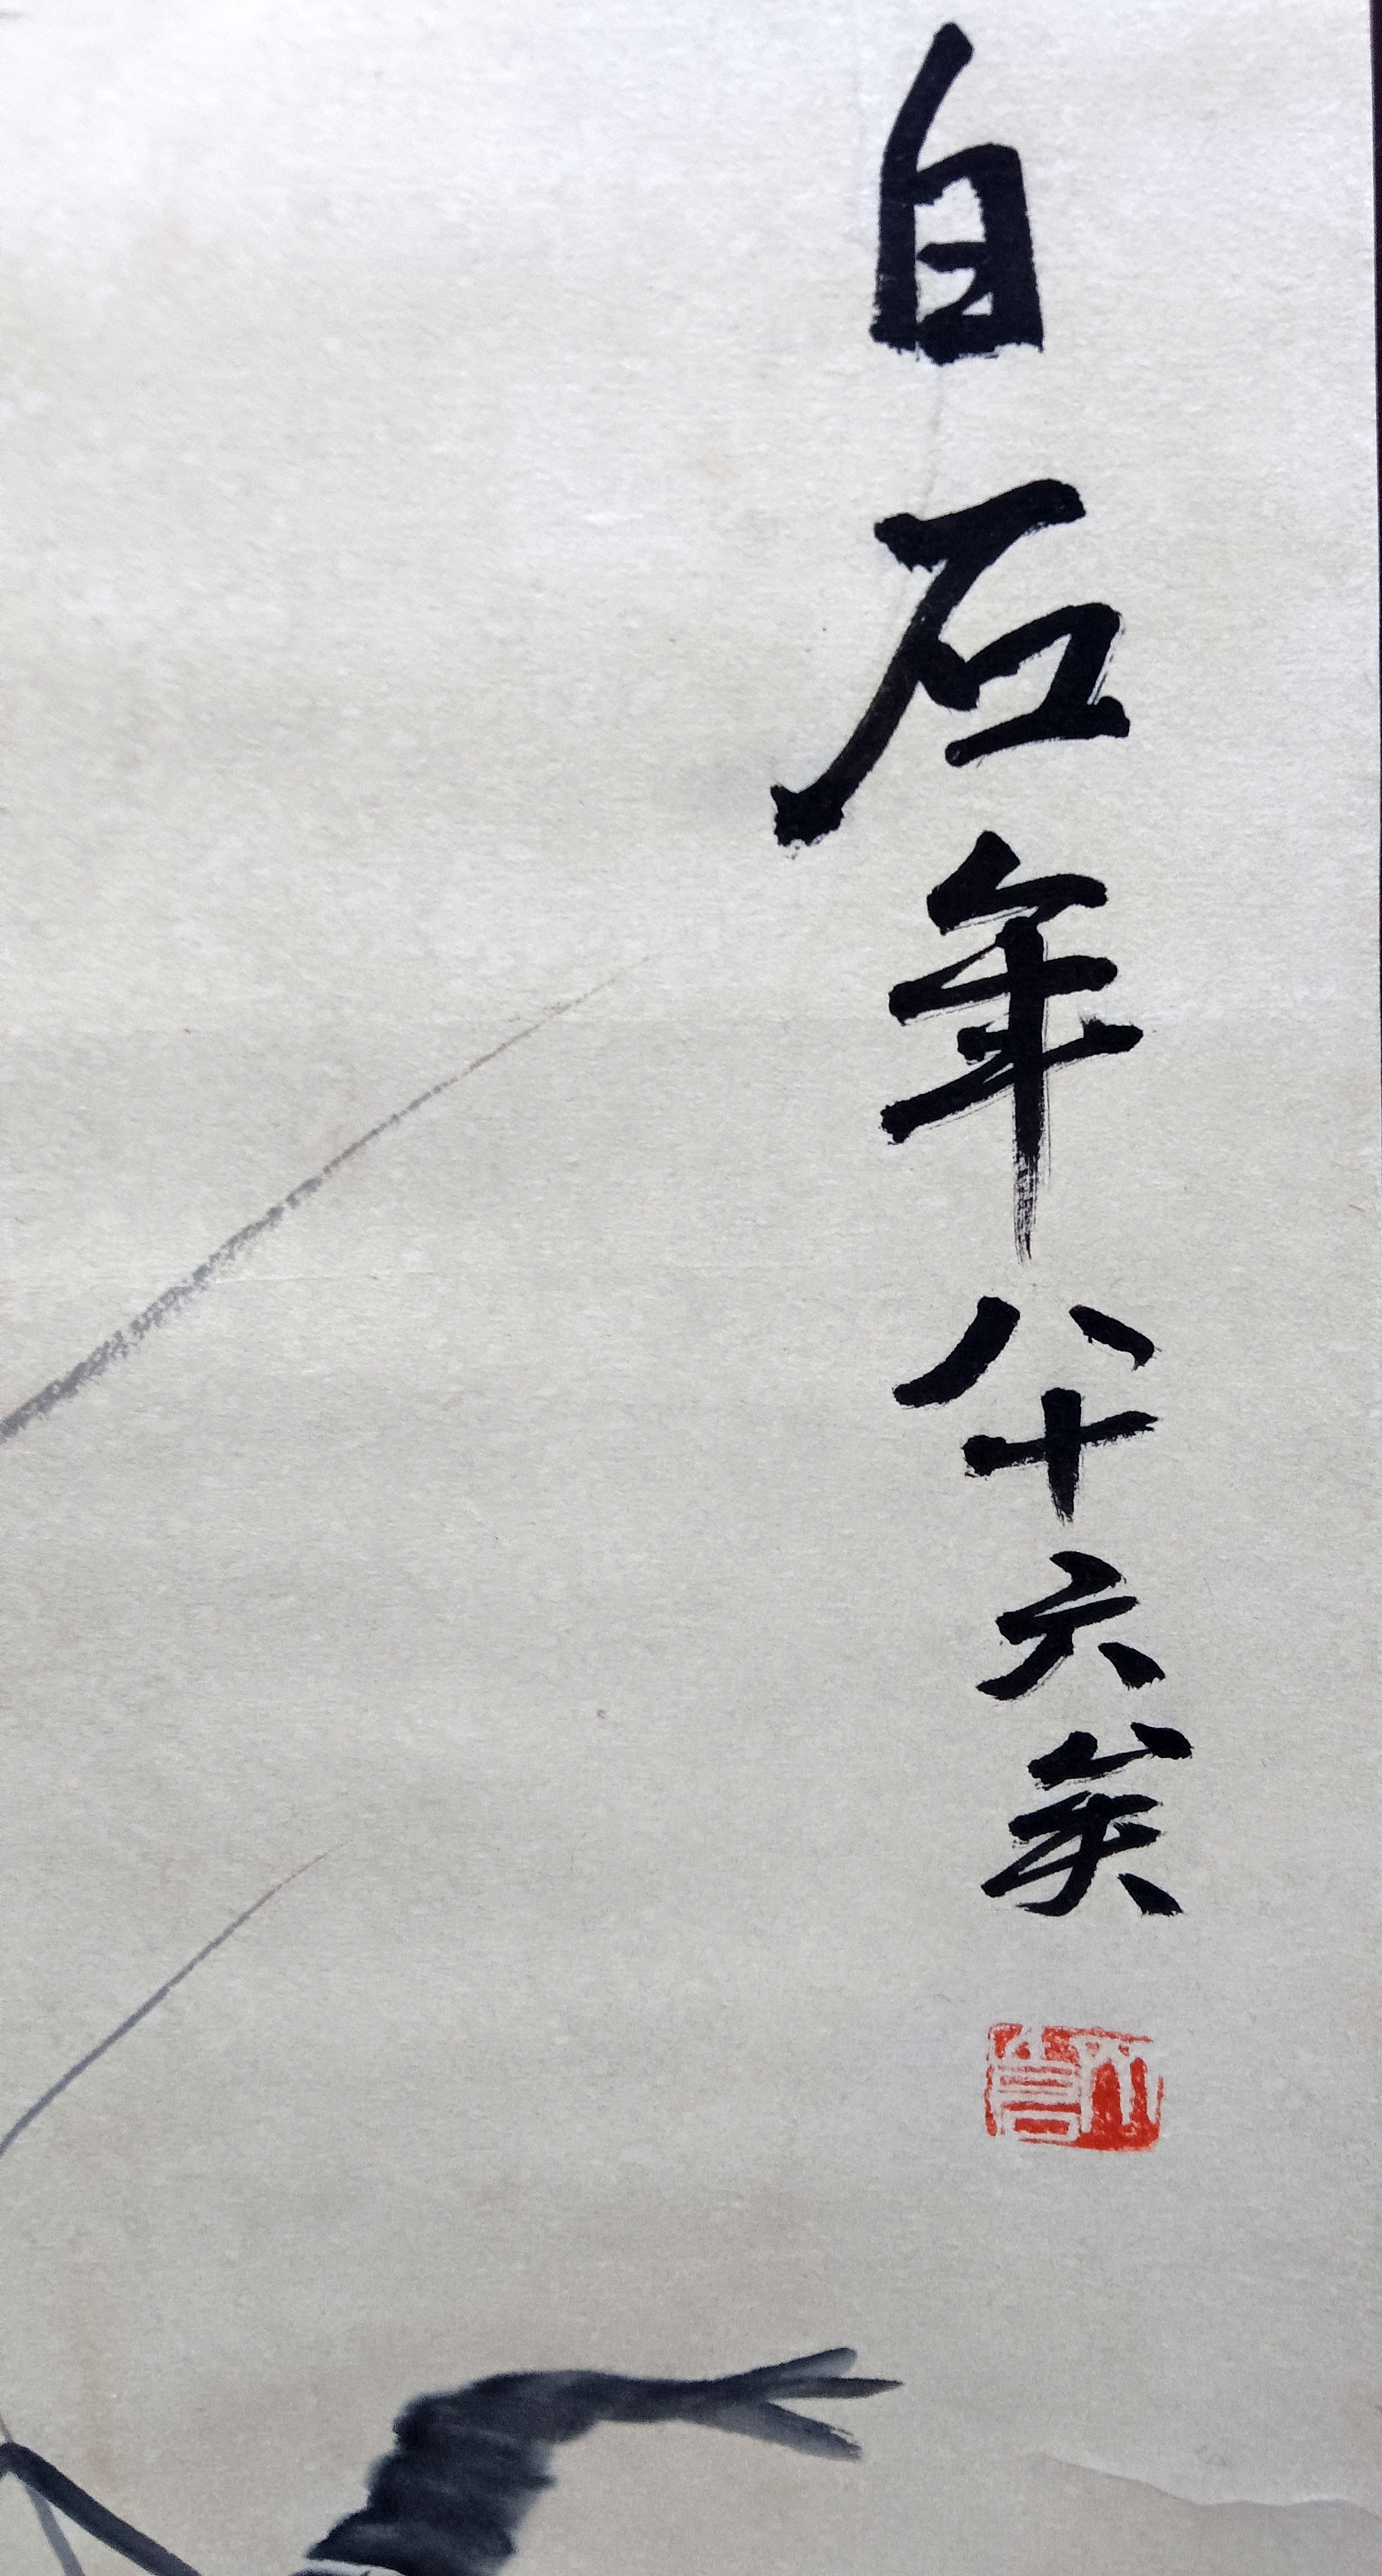 白石年八十六矣